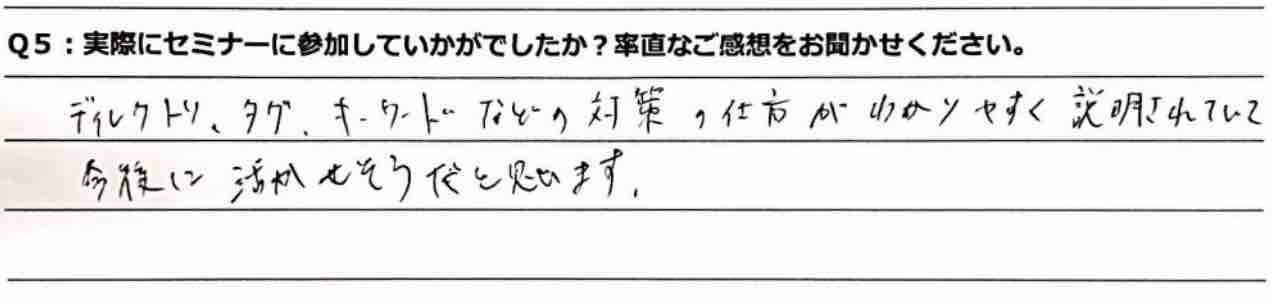 Q5：実際にセミナーに参加していかがでしたか？率直なご感想をお聞かせください。
ディレクトリ、タグ、キーワードなどの対策の仕方がわかりやすく説明されていて
今後に活かせそうだと思います。